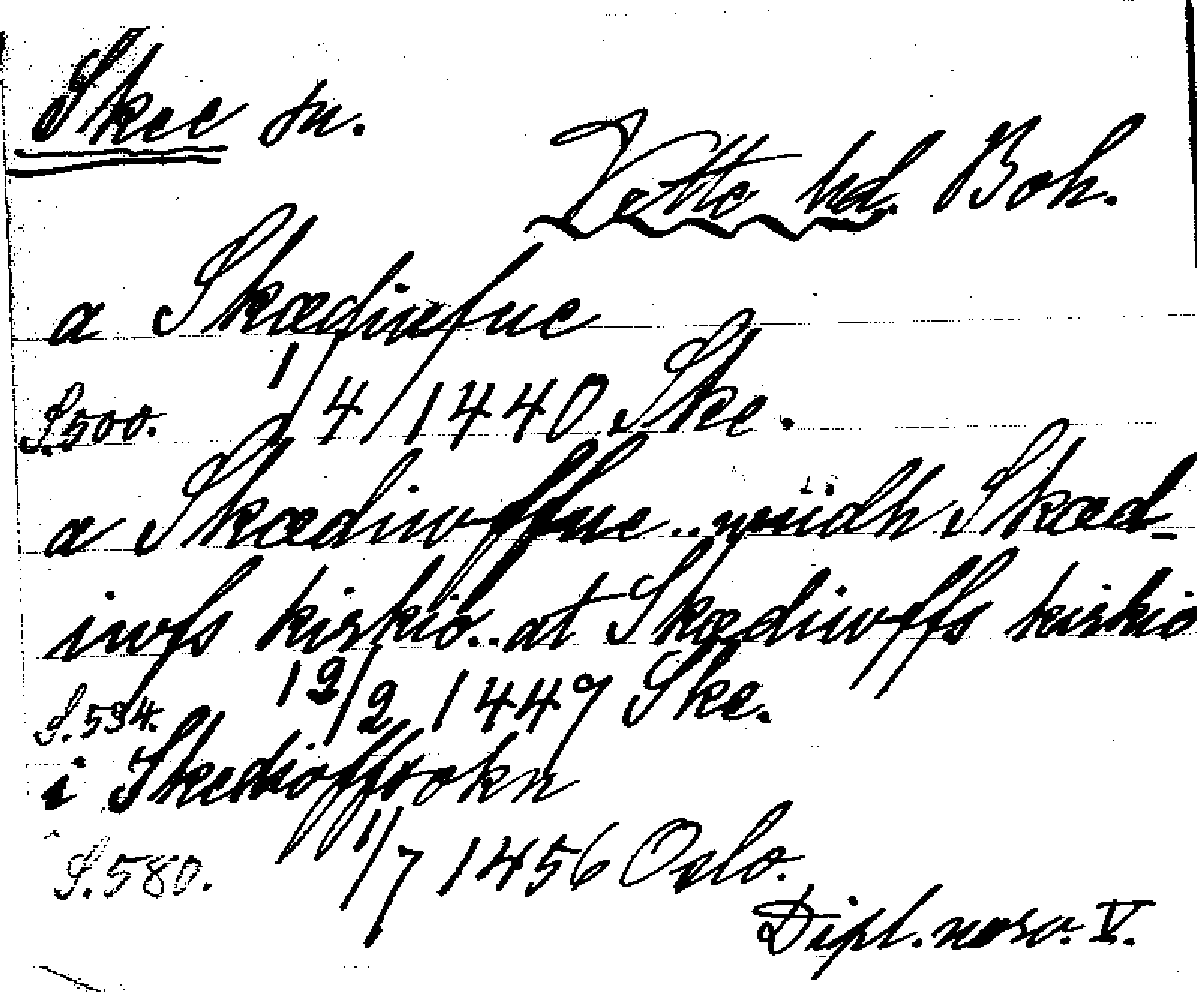 Skee sn.
Vette hd. Boh.
a Skædiufue
S. 500. 1/4 1440 Ske.
a Skædiwffue.. widh Skæd-
iwfs kirkio.. at Skædiwffs kirkio
S. 534. 12/2 1447 Ske.
i Skedioffsokn
S. 580. 1/7 1456 Oslo.
Dipl. norv. V.